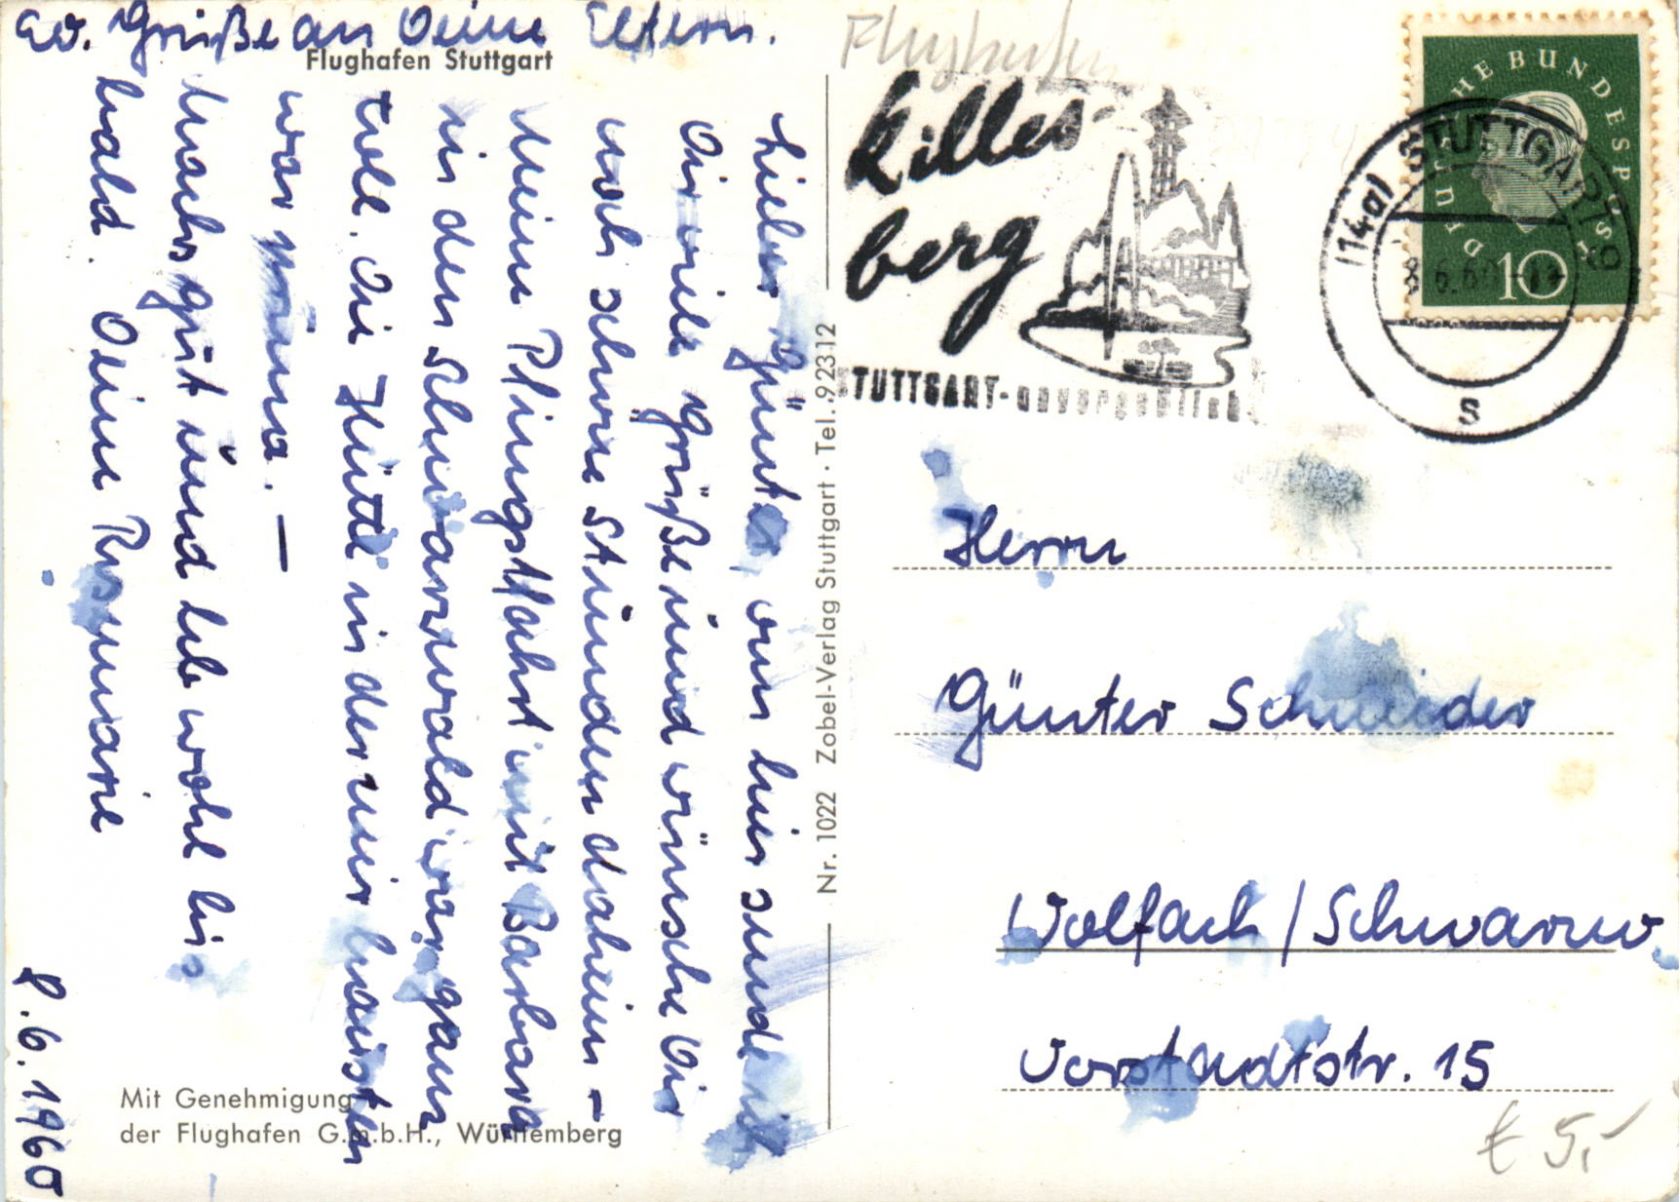 Ev. Grüße an Deine Eltern.
Flughafen Stuttgart
8.6.1960
Lieber Günter, von hier sende ich
Dir viele Grüße und wünsche Dir
noch schöne Stunden daheim –
Meine Pfingstfahrt mit Barbara
in den Schwarzwald war ganz
toll. Die Hütte in der wir hausten
war prima. –
Machs gut und lebe wohl bis
bald. Deine Rosemarie
Mit Genehmigung
der Flughafen G.m.b.H., Württemberg
Nr. 1022 Zobel-Verlag Stuttgart · Tel. 92312
Flughafen
Killes-
berg
STUTTGART - unvergeßlich
DEUTSCHE BUNDESPOST
10
(14a) STUTTGART 9
8.6.60
s
Herrn
Günter Schneider
Wolfach / Schwarzw.
Vorstadtstr. 15
€ 5,-